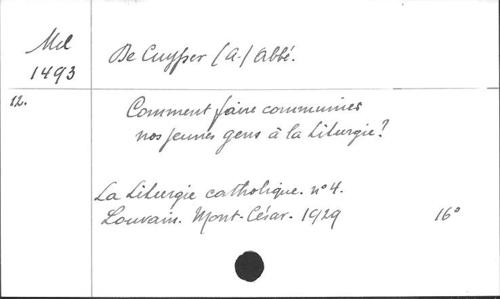 Mel
1493
De Cuyper (A.) Abbé.
12.
Comment faire communier
nos jeunes gens à la Liturgie?
La Liturgie catholique. n° 4.
Louvain. Mont-César. 1929
16°